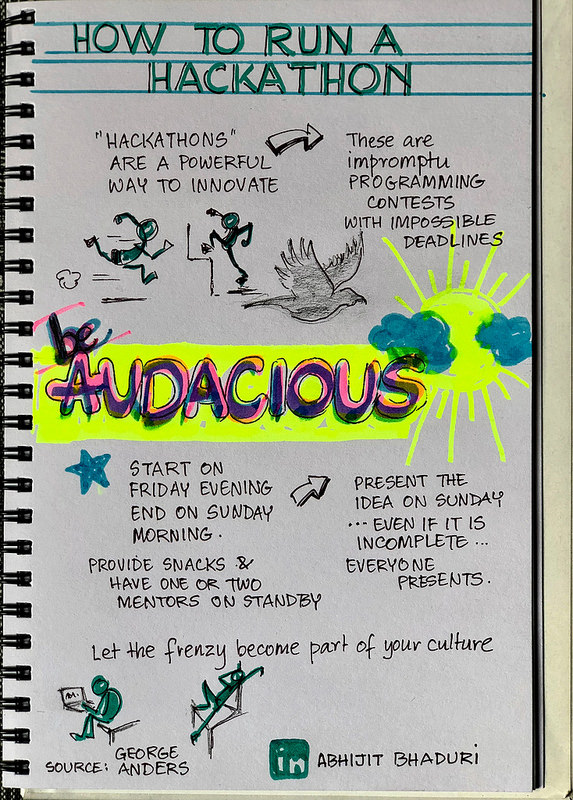 HOW TO RUN A
HACKATHON
"HACKATHONS"
ARE A POWERFUL
WAY TO INNOVATE
These are
impromptu
PROGRAMMING
CONTESTS
WITH IMPOSSIBLE
DEADLINES
be
AUDACIOUS
START ON
FRIDAY EVENING
END ON SUNDAY
MORNING.
PROVIDE SNACKS &
HAVE ONE OR TWO
MENTORS ON STANDBY
PRESENT THE
IDEA ON SUNDAY
... EVEN IF IT IS
INCOMPLETE ...
EVERYONE
PRESENTS.
Let the frenzy become part of your culture
SOURCE: GEORGE
ANDERS
in ABHIJIT BHADURI